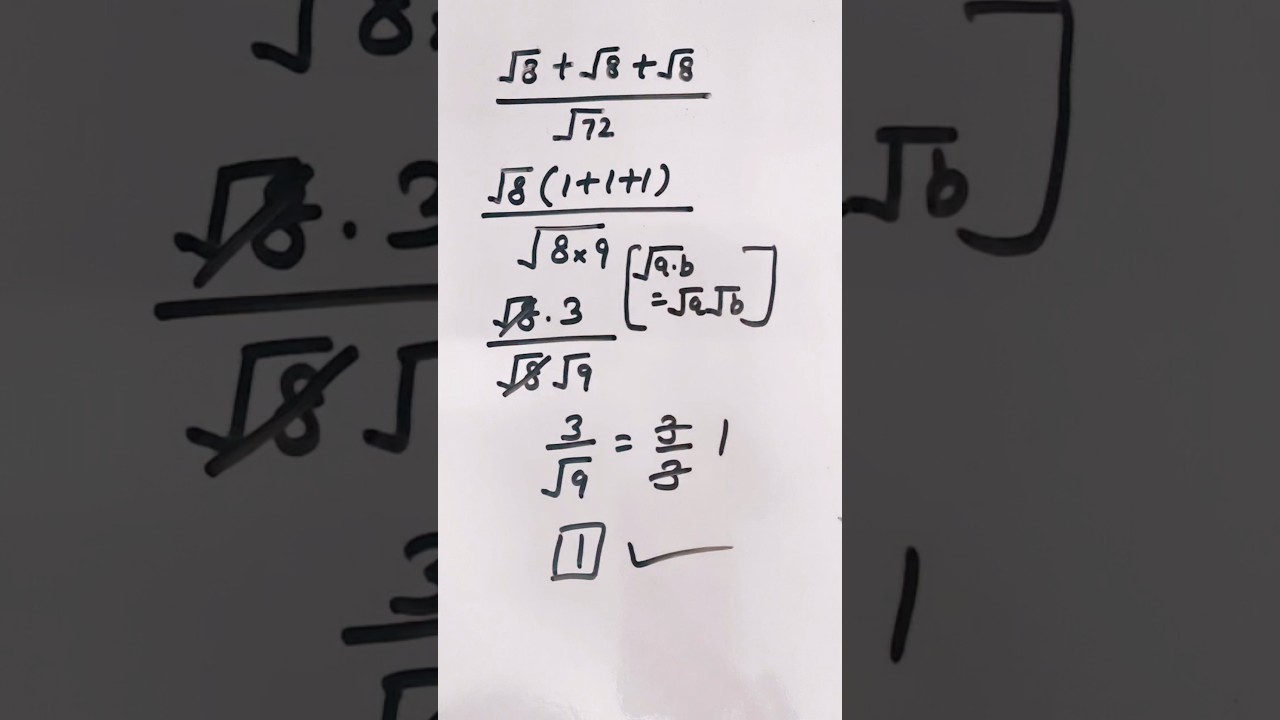 √8 + √8 + √8
√72
√8 (1+1+1)
√8×9
[√a·b
= √a√b]
√8 · 3
√8 √9
3/√9 = 3/3 1
1 ✓